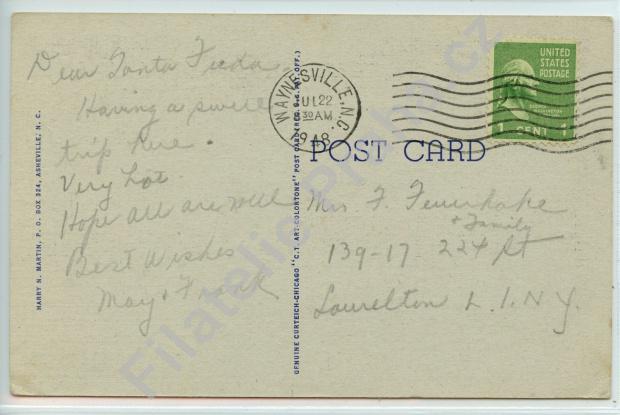 Dear Tanta Frieda
Having a swell
trip here.
Very hot.
Hope all are well
Best Wishes
May & Frank
HARRY N. MARTIN, P. O. BOX 324, ASHEVILLE, N. C.
GENUINE CURTEICH-CHICAGO "C.T. ART-COLORTONE" POST CARD (REG. U.S. PAT. OFF.)
WAYNESVILLE, N.C.
JUL 22
30 AM
1948
UNITED
STATES
POSTAGE
1 CENT 1
POST CARD
Mrs F.
& Family
139-17 224 St
Laurelton L.I. N.Y.
Filatelie Ppraha.cz